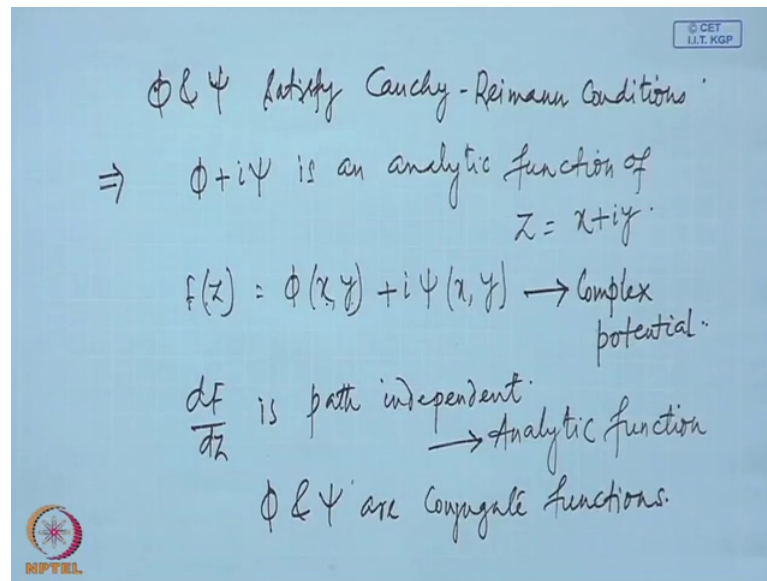 © CET
I.I.T. KGP
Φ & Ψ satisfy Cauchy-Reimann Conditions.
⇒ Φ + iΨ is an analytic function of
Z = x+iy.
F(Z) = Φ(x,y) + iΨ(x,y) → Complex
potential.
dF/dz is path independent.
→ Analytic function
Φ & Ψ are Conjugate functions.
NPTEL